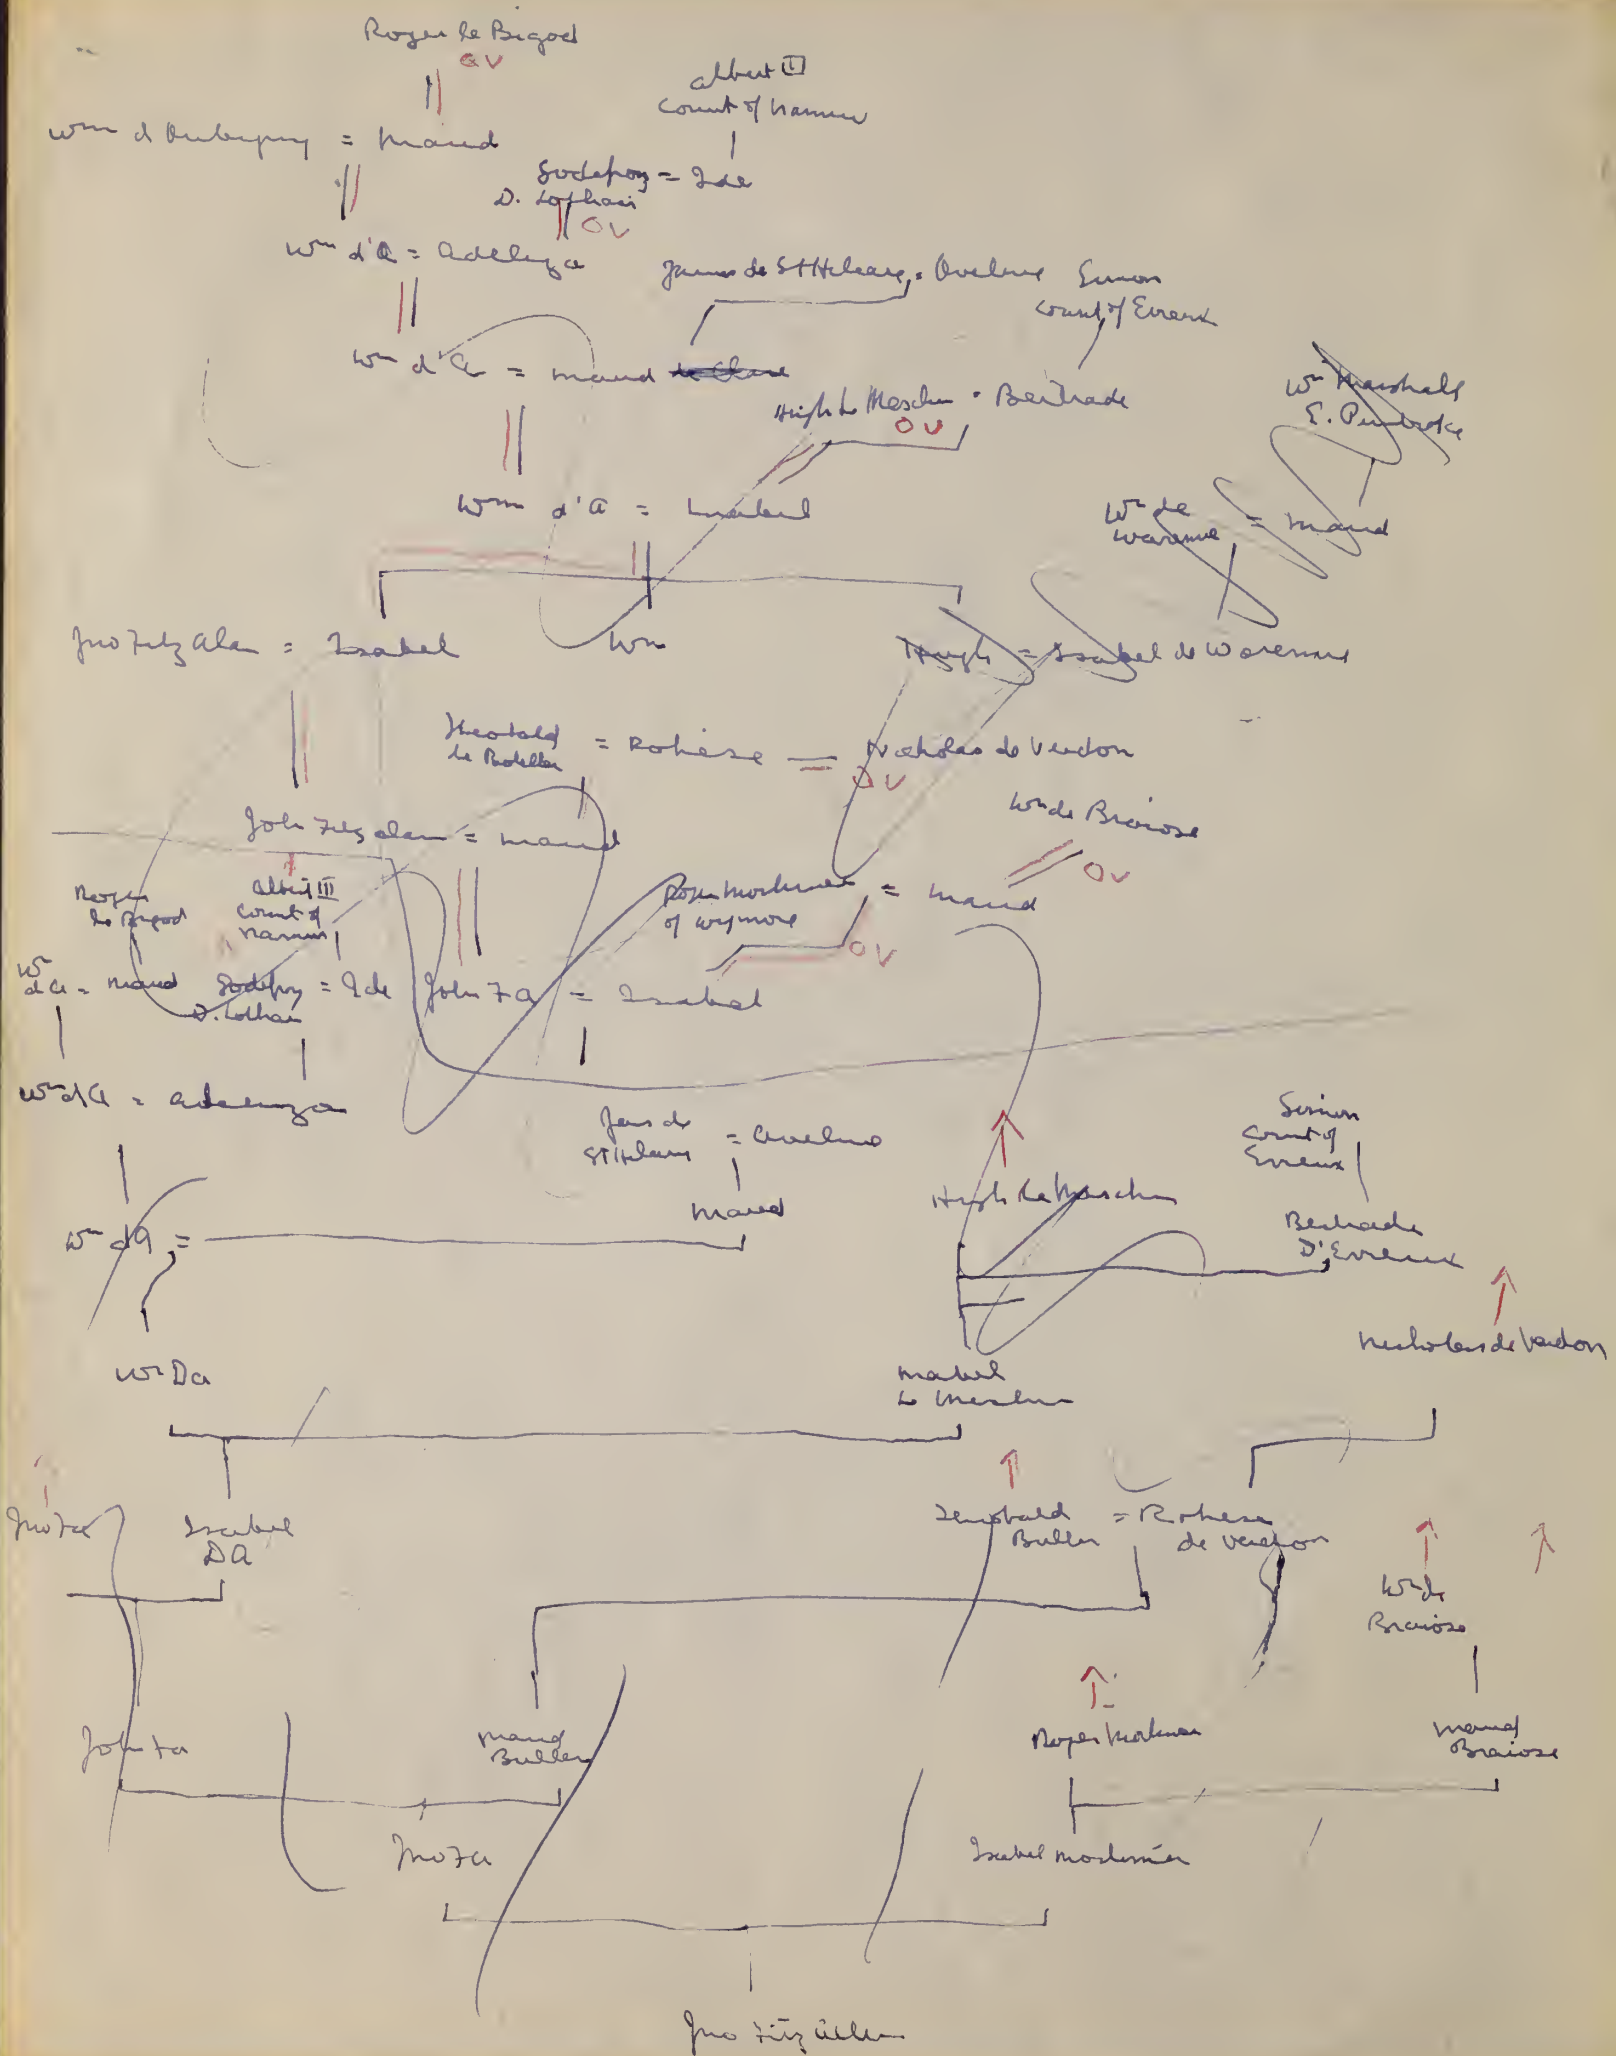 Roger le Bigod
OV
Albert III
Count of Namur
Wm d'Aubigny = Maud
Godefroy = Ide
D. Lothair
OV
Wm d'A = Adeliza
James de St Hileary = Aveline
Simon
Count of Evreux
Wm d'A = Maud de Clare
Hugh le Meschin = Bertrade
OV
Wm Marshall
E. Pembroke
Wm d'A = Mabel
Wm de
Warenne = Maud
Jno Fitz Alan = Isabel
Wm
Hugh = Isabel de Warenne
Theobald
le Boteller = Rohese = Nicholas de Verdon
OV
Wm de Braiose
OV
John Fitz Alan = Maud
Roger
le Bigod
Albert III
Count of
Namur
Roger Mortimer
of Wigmore = Maud
OV
Wm
d'A = Maud
Godefroy = Ide
D. Lothair
John FA = Isabel
Wm d'A = Adeliza
Jas de
St Hilary = Aveline
Simon
Count of
Evreux
Maud
Hugh le Meschin
Bertrade
D'Evreux
Wm d'A =
Nicholas de Verdon
Wm DA
Mabel
le Meschin
Jno FA
Isabel
DA
Theobald
Butler = Rohese
de Verdon
Wm de
Braiose
John FA
Maud
Butler
Roger Mortimer
Maud
Braiose
Jno FA
Isabel Mortimer
Jno Fitz Allen